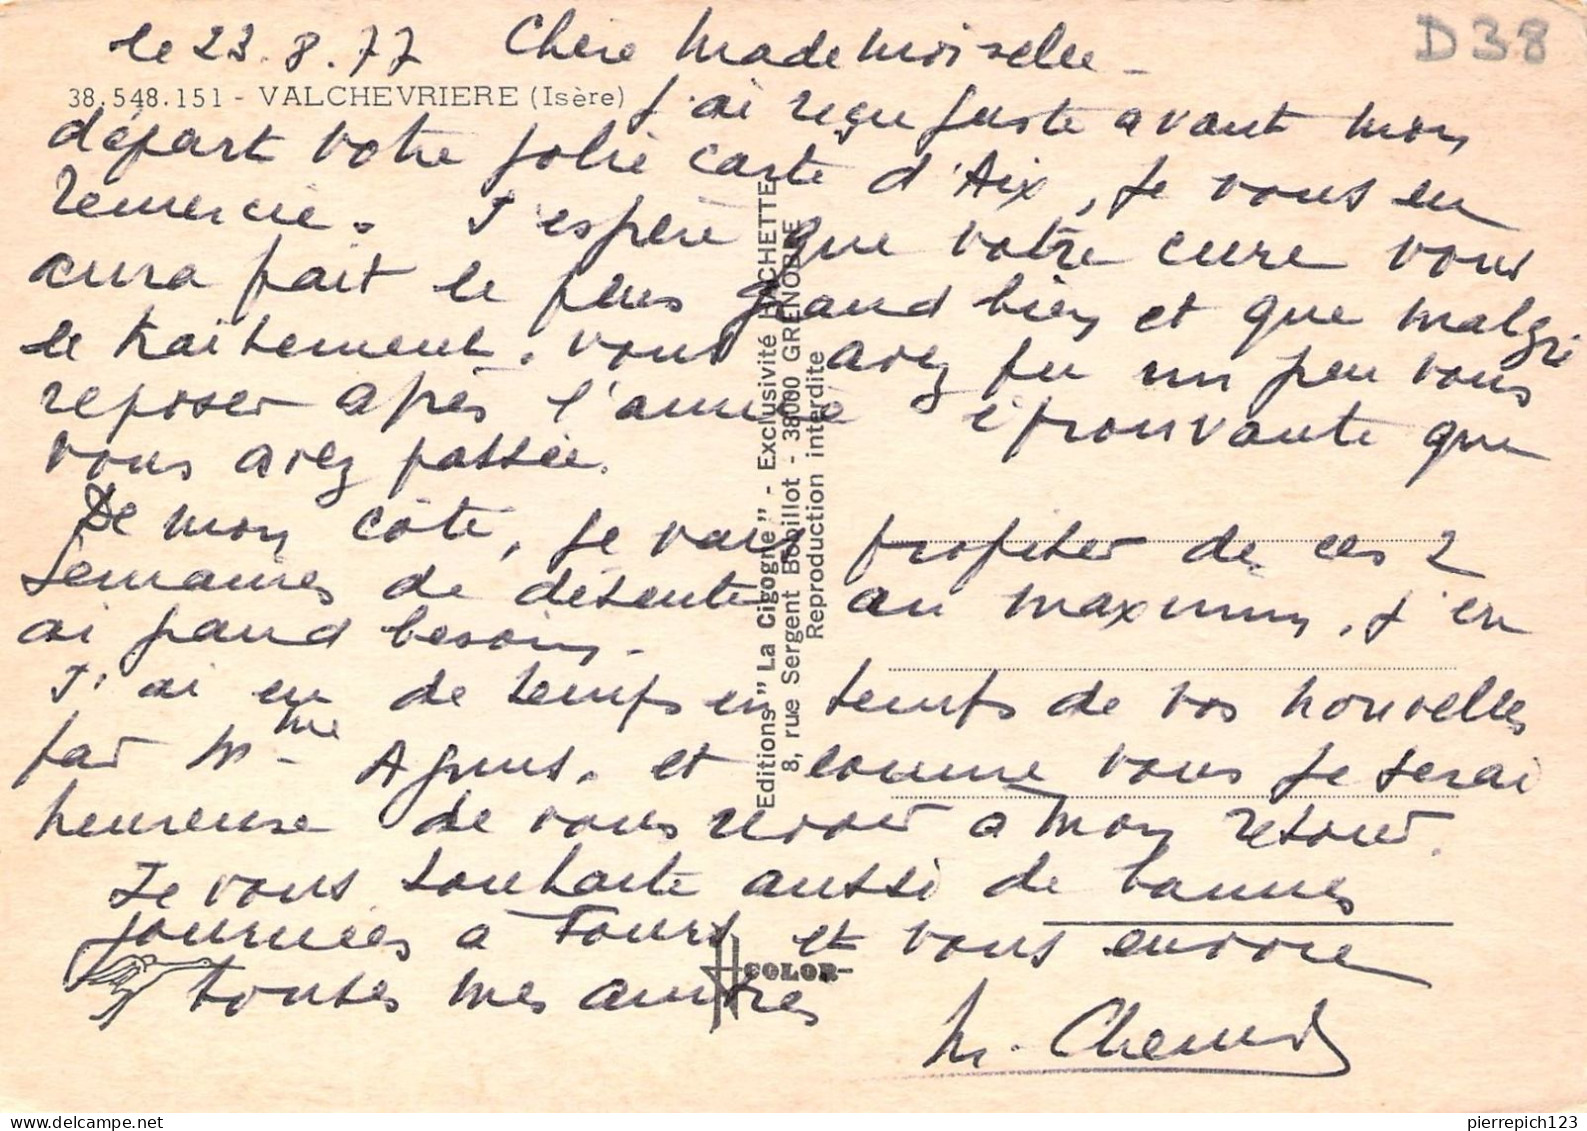 D38
le 23.8.77 Chère Mademoiselle -
38.548.151 - VALCHEVRIERE (Isère)
J'ai reçu juste avant mon
départ votre jolie carte d'Aix, je vous en
remercie. J'espère que votre cure vous
aura fait le plus grand bien et que malgré
le traitement, vous avez pu un peu vous
reposer après l'année éprouvante que
vous avez passée.
De mon côté, je vais profiter de ces 2
semaines de détente au maximum, j'en
ai grand besoin.
J'ai eu de temps en temps de vos nouvelles
par Mme Agnus. et comme vous je serai
heureuse de vous revoir à mon retour.
Je vous souhaite aussi de bonnes
journées à Tours et vous envoie
toutes mes amitiés
M.
Editions "La Cigogne" - Exclusivité HACHETTE
8, rue Sergent Bobillot - 38000 GRENOBLE
Reproduction interdite
COLOR
pierrepich123